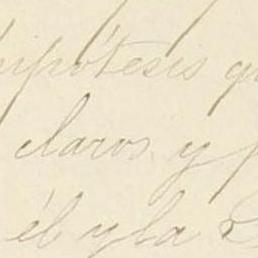 hipótesis q
claros y p
él y la